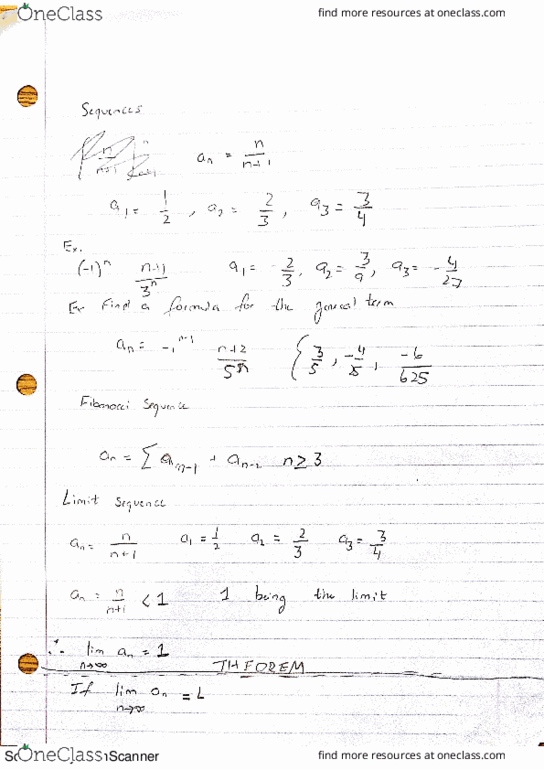 OneClass find more resources at oneclass.com
Sequences
aₙ = n/n+1
a₁ = 1/2 , a₂ = 2/3 , a₃ = 3/4
Ex.
(-1)ⁿ n+1/3ⁿ a₁ = - 2/3, a₂ = 3/9, a₃ = - 4/27
Ex Find a formula for the general term
aₙ = -1ⁿ⁻¹ n+2/5ⁿ { 3/5 , -4/ , -6/625
Fibonacci Sequence
aₙ = aₙ₋₁ + aₙ₋₂ n ≥ 3
Limit Sequence
aₙ = n/n+1 a₁ = 1/2 a₂ = 2/3 a₃ = 3/4
aₙ = n/n+1 < 1 1 being the limit
∴ lim aₙ = 1
n→∞
THEOREM
If lim aₙ = L
n→∞
OneClass Scanner find more resources at oneclass.com